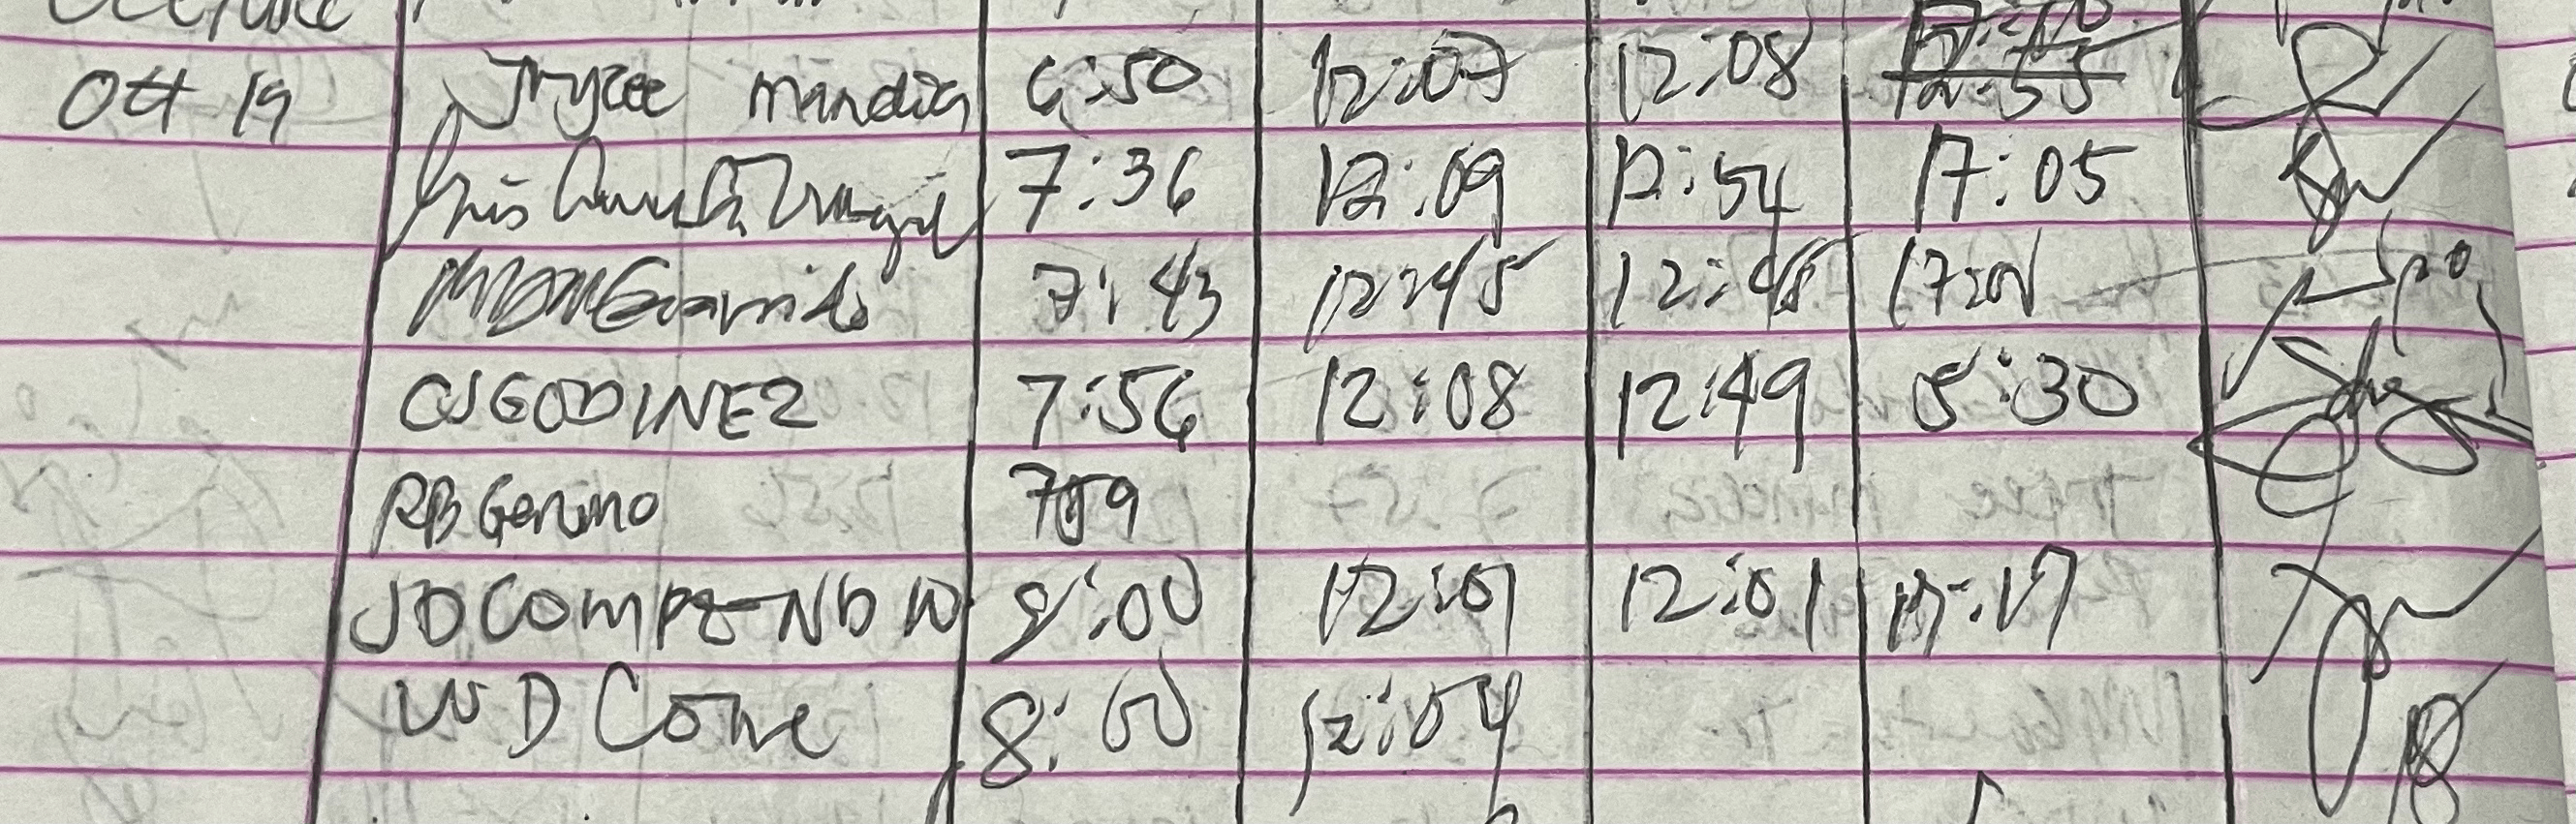 Oct 19 Jrycee mandia 6:50 12:07 12:08 12:55
7:36 12:09 12:54 17:05
7:43 12:45 12:48
CJ GODINEZ 7:56 12:08 12:49 5:30
RB Genino 759
JD COMPENDIO 8:00 12:01 12:01 17:17
WD Cone 8:00 12:04